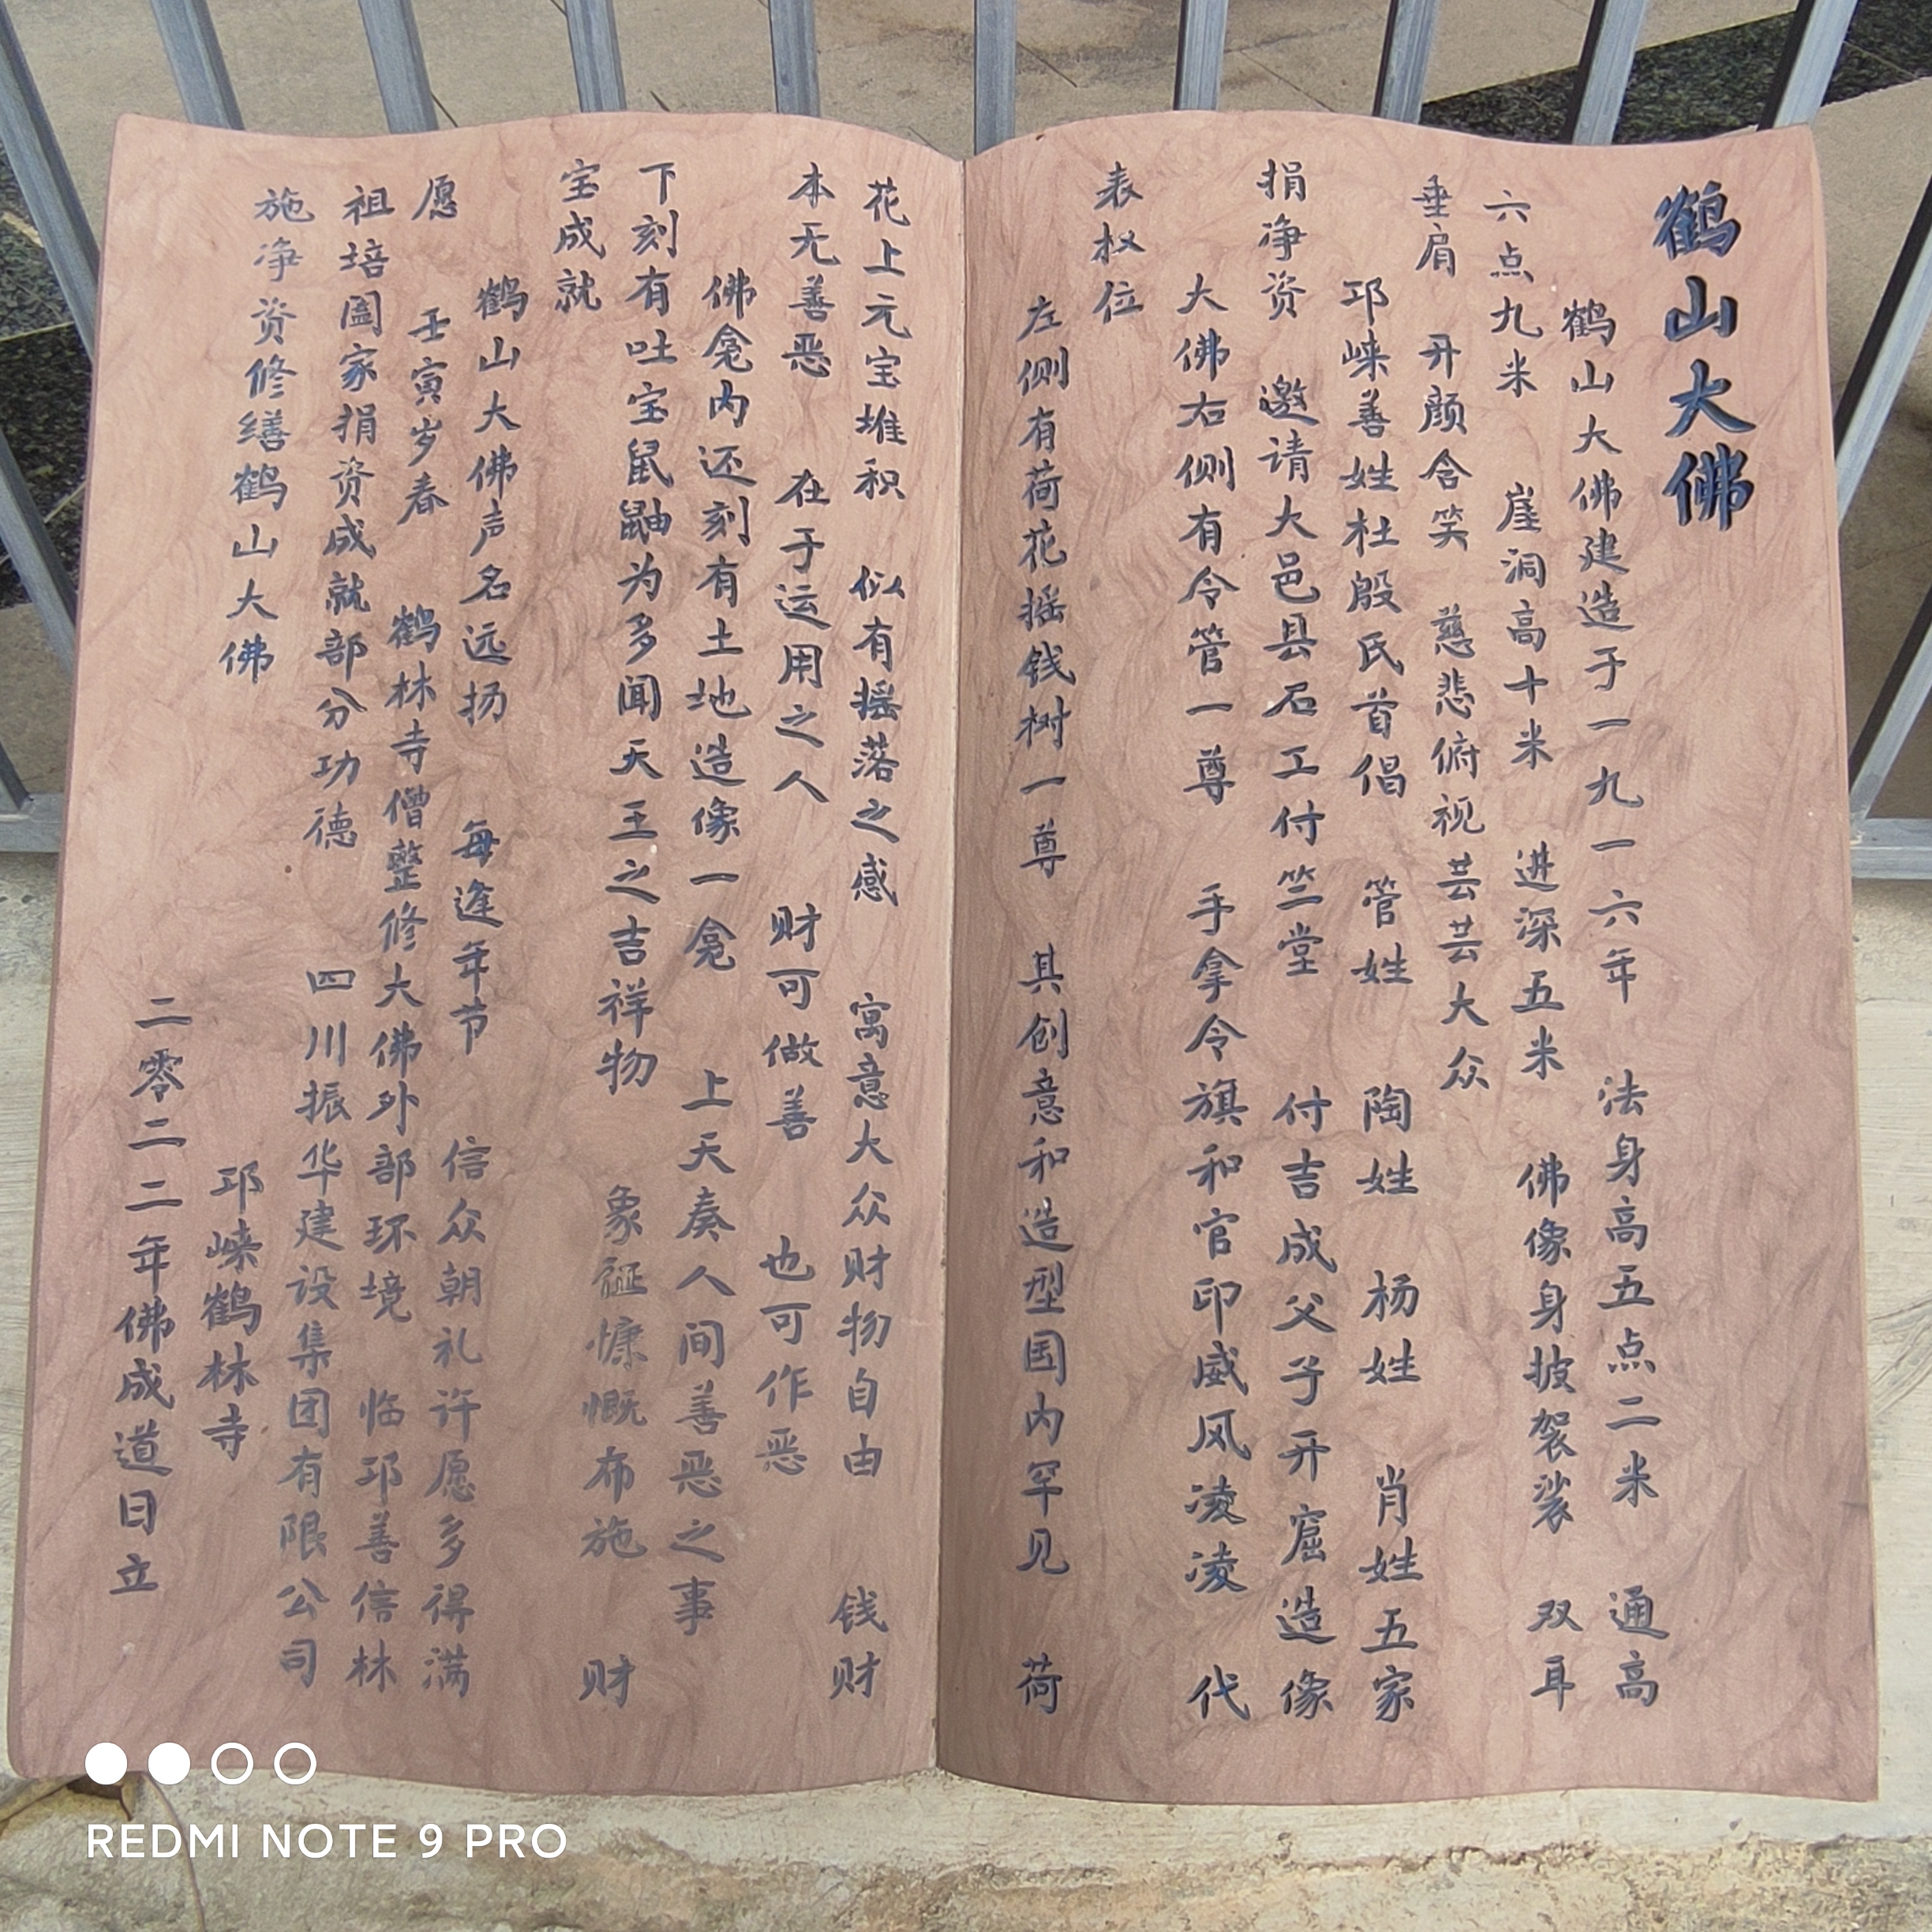 鹤山大佛
鹤山大佛建造于一九一六年 法身高五点二米 通高
六点九米 崖洞高十米 进深五米 佛像身披袈裟 双耳
垂肩 开颜含笑 慈悲俯视芸芸大众
邛崃善姓杜殷氏首倡 管姓 陶姓 杨姓 肖姓五家
捐净资 邀请大邑县石工付竺堂 付吉成父子开窟造像
大佛右侧有令管一尊 手拿令旗和官印威风凌凌 代
表权位
左侧有荷花摇钱树一尊 其创意和造型国内罕见 荷
花上元宝堆积 似有摇落之感 寓意大众财物自由 钱财
本无善恶 在于运用之人 财可做善 也可作恶
佛龛内还刻有土地造像一龛 上天奏人间善恶之事
下刻有吐宝鼠鼬为多闻天王之吉祥物 象征慷慨布施 财
宝成就
鹤山大佛声名远扬 每逢年节 信众朝礼许愿多得满
愿
壬寅岁春 鹤林寺僧整修大佛外部环境 临邛善信林
祖培阖家捐资成就部分功德 四川振华建设集团有限公司
施净资修缮鹤山大佛
邛崃鹤林寺
二零二二年佛成道日立
REDMI NOTE 9 PRO